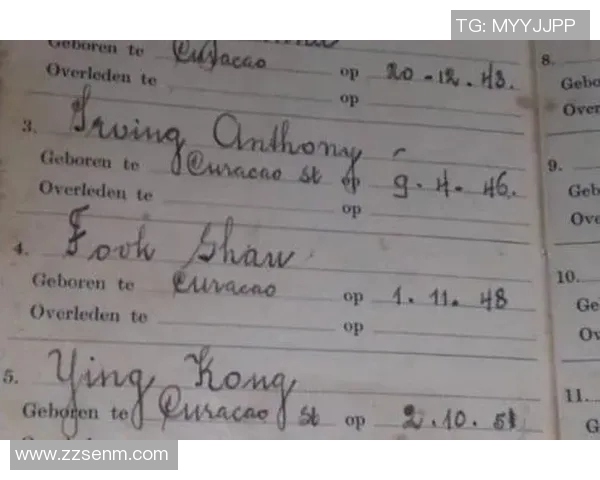 TG: MYYJJPP
Geboren te Curacao op 20-12.43.
Overleden te op
3. Irving Anthony
Geboren te Curacao st op 9.4.46.
Overleden te op
4. Fook Shau
Geboren te Curacao op 1.11.48
Overleden te op
5. Ying Kong
Geboren te Curacao st op 2.10.51
8.
Gebo
Over
9.
Geb
Ove
10.
Ge
Ov
11.
G
www.zzsenm.com